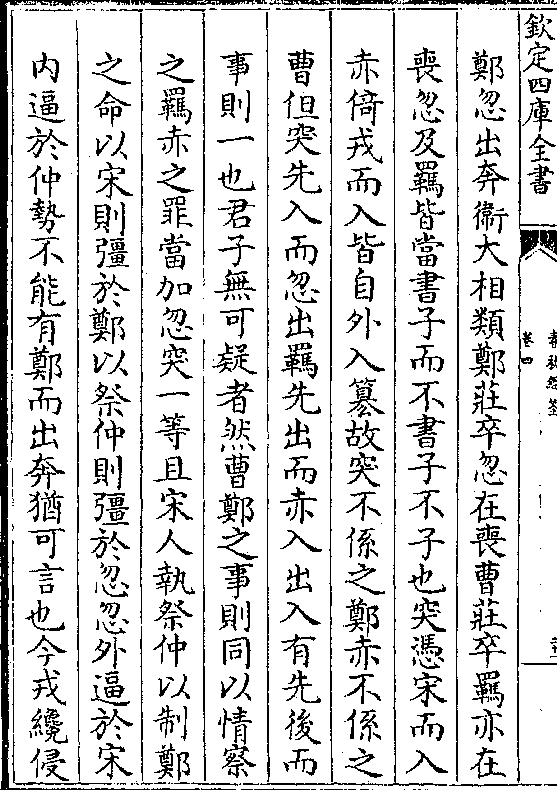 欽定四庫全書
卷四
鄭忽出奔衞大相類鄭莊卒忽在喪曹莊卒羈亦在
喪忽及羈皆當書子而不書子不子也突憑宋而入
赤倚戎而入皆自外入簒故突不係之鄭赤不係之
曹但突先入而忽出羈先出而赤入出入有先後而
事則一也君子無可疑者然曹鄭之事則同以情察
之羈赤之罪當加忽突一等且宋人執祭仲以制鄭
之命以宋則彊於鄭以祭仲則彊於忽忽外逼於宋
内逼於仲勢不能有鄭而出奔猶可言也今戎纔侵